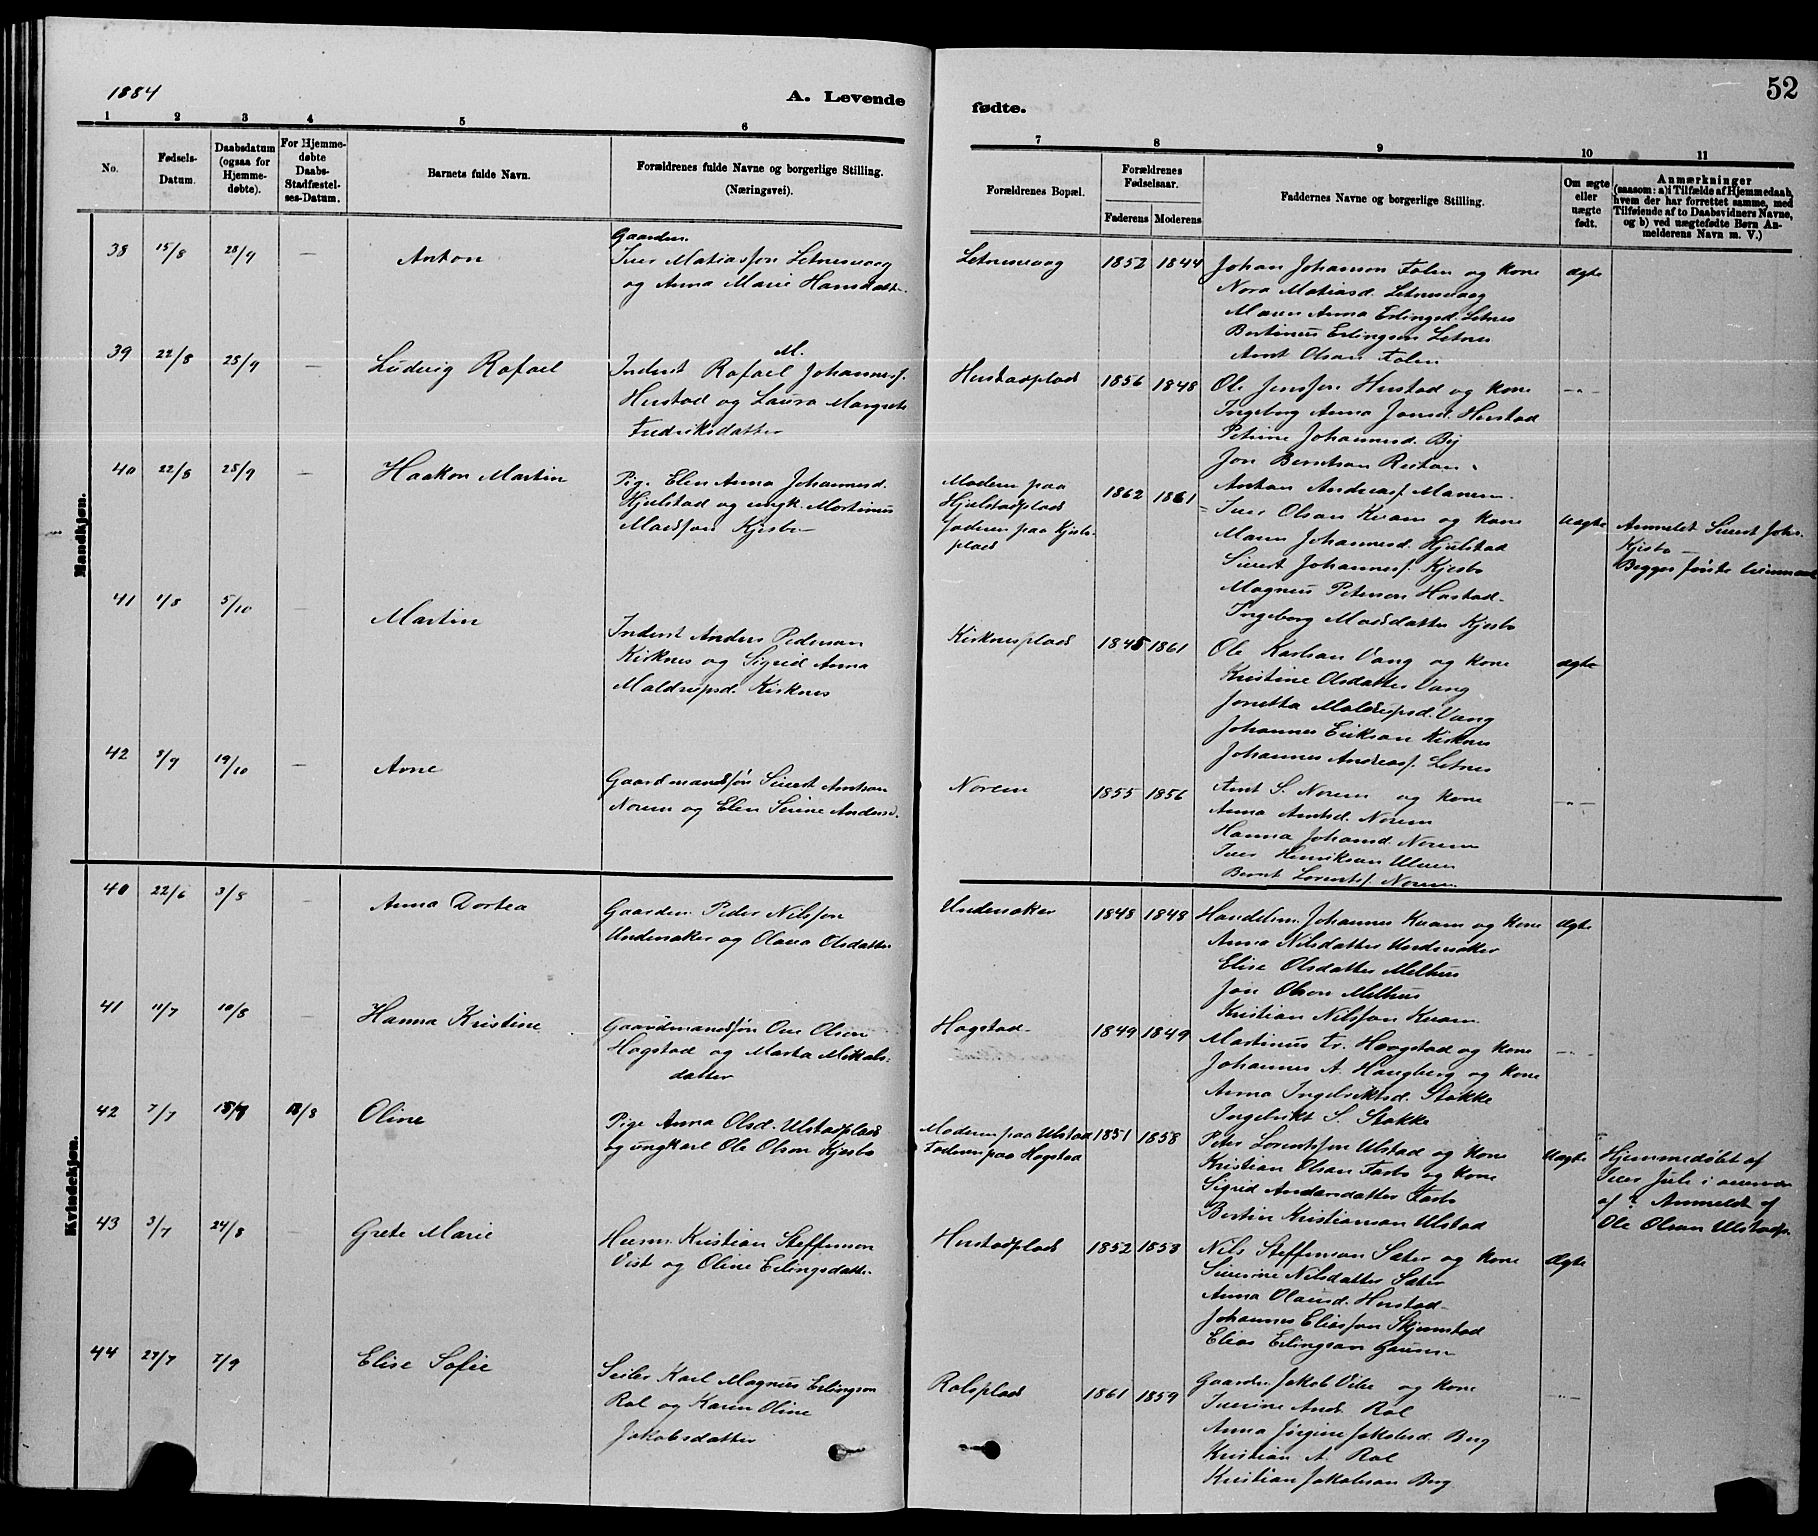 1884
A. Levende
fødte.
52
1 2 3 4 5 6 7 8 9 10 11
No.
Fødsels-
Datum.
Daabsdatum
(ogsaa for
Hjemme-
døbte).
For Hjemme-
døbte
Daabs-
Stadfæstel-
ses-Datum.
Barnets fulde Navn.
Forældrenes fulde Navne og borgerlige Stilling.
(Næringsvei).
Forældrenes Bopæl.
Forældrenes
Fødselsaar.
Faderens Moderens
Faddernes Navne og borgerlige Stilling.
Om ægte
eller
uægte
født.
Anmærkninger
(saasom: a) i Tilfælde af Hjemmedaab,
hvem der har forrettet samme, med
Tilføiende af to Daabsvidners Navne,
og b) ved uægtefødte Børn An-
melderens Navn m. V.)
Mandkjøn.
38 15/8 28/9 — Anton
Gaardm.
Iver Matiasson Letnesvaag
og Anna Marie Hansdatter
Letnesvaag 1852 1844
Johan Johanson Folen og Kone
Nora Matiasd. Letnesvaag
Maren Anna Erlingsd. Letnes
Bertinus Erlingsen Letnes
Arnt Olsen Folen
ægte
39 22/8 28/9 — Ludvig Rafael
M.
Inderst Rafael Johannesf.
Hustad og Laura Margrete
Fredriksdatter
Hustadplads 1856 1848
Ole Jensson Hustad og Kone
Ingeborg Anna Jonsd. Hustad
Petrine Johannesd. By
Jon Berntson Reitan
Anton Andreasf. Manem
—"—
40 22/8 28/9 — Haakon Martin
Pige Elen Anna Johannesd.
Hjulstad og ungk. Martinus
Madsson Kjesbo
Moderen paa
Hjulstadplads
faderen paa Kjesbo-
plads
1862 1861
Iver Olson Kvam og Kone
Maren Johannesd. Hjulstad
Sivert Johannesf. Kjesbo
Magnus Peterson Hustad
Ingeborg Madsdatter Kjesbo
Uægte
Anmeldt Sivert Joh.
Kjesbo —
Begges første Leiermaal
41 1/8 5/10 — Martin
Inderst Anders Pederson
Kirknes og Sigrid Anna
Maldrupsd. Kirknes
Kirknesplads 1845 1861
Ole Karlson Vang og Kone
Kristine Olsdatter Vang
Jonetta Maldrupsd. Vang
Johannes Erikson Kirknes
Johannes Andreasf. Letnes
ægte
42 8/9 19/10 — Arne
Gaardmandssøn Sivert Arntson
Norem og Elen Serine Andersd.
Norem 1855 1856
Arnt S. Norem og Kone
Anna Arntsd. Norem
Hanna Johansd. Norem
Iver Henrikson Ulven
Bernt Lorentsf. Norem
—"—
Kvindekjøn.
40 22/6 3/8 — Anna Dortea
Gaardm. Peder Nilsson
Undersaker og Olava Olsdatter
Undersaker 1848 1848
Handelsm. Johannes Kvam og Kone
Anna Nilsdatter Undersaker
Elise Olsdatter Melhus
Jon Olson Melhus
Kristian Nilsson Kvam
Ægte
41 11/7 10/8 — Hanna Kristine
Gaardmandssøn Ole Olson
Hogstad og Marta Mikals-
datter
Hogstad 1849 1849
Martinus Tr. Haugstad og Kone
Johannes A. Haugberg og Kone
Anna Ingebriktsd. Stokke
Ingebrikt S. Stokke
—"—
42 7/7 15/7 18/8 Oline
Pige Anna Olsd. Ulstadplads
og ungkarl Ole Olson Kjesbo
Moderen paa Ulstad
Faderen paa Hogstad
1851 1858
Peter Lorentsson Ulstad og Kone
Kristian Olson Farbo og Kone
Sigrid Andersdatter Farbo
Bertin Kristianson Ulstad
Uægte
Hjemmedøbt af
Iver Juli i
af ? Anmeldt af
Ole Olson Ulstadp.
43 3/7 24/8 — Grete Marie
Husm. Kristian Steffenson
Vist og Oline Erlingsdatter
Hustadplads 1852 1858
Nils Steffenson Sæter og Kone
Siverine Nilsdatter Sæter
Anna Olausd. Hustad
Johannes Eliasson Skjemstad
Elias Erlingson
Ægte
44 27/7 7/9 — Elise Sofie
Seiler Karl Magnus Erlingson
Rol og Karen Oline
Jakobsdatter
Rolsplads 1861 1859
Gaardm. Jakob Vibe og Kone
Iverine And. Rol
Anna Jørgine Jakobsd. Berg
Kristian A. Rol
Kristian Jakobson Berg
—"—